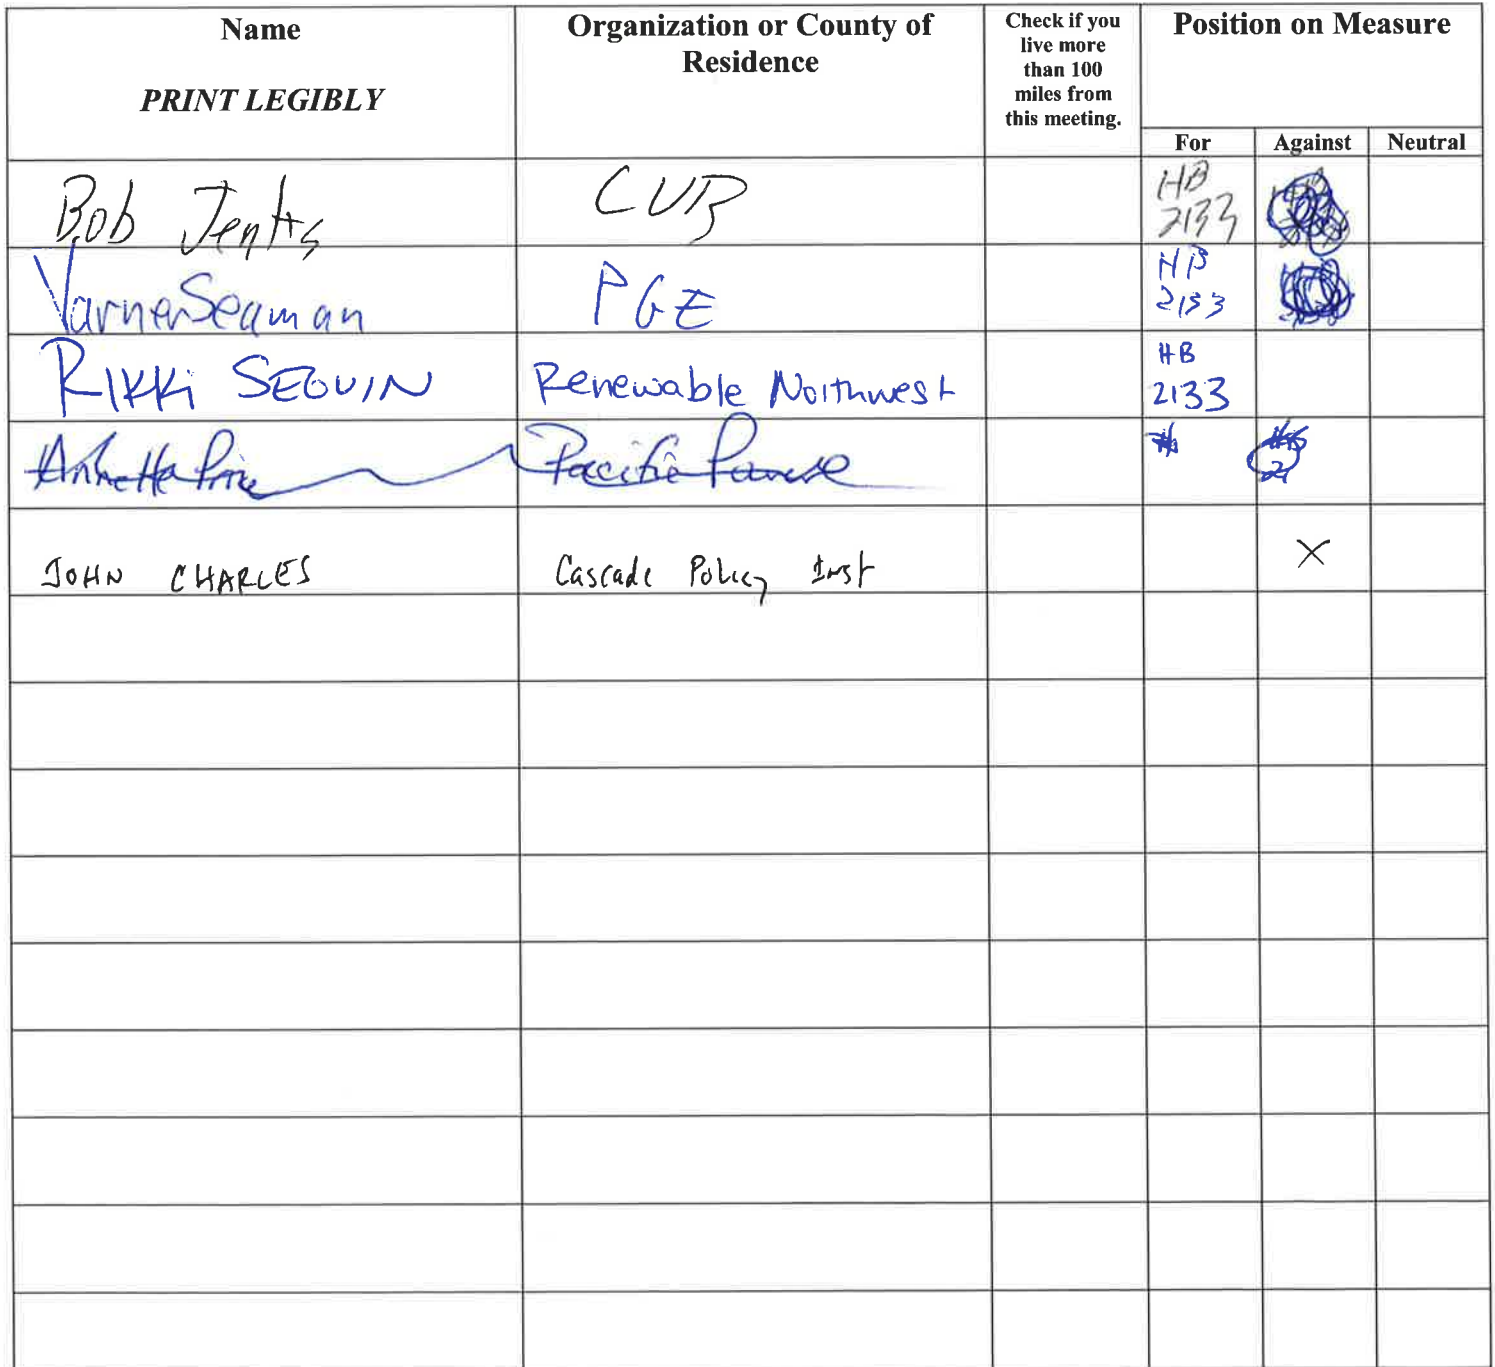 Name
PRINT LEGIBLY
Organization or County of
Residence
Check if you
live more
than 100
miles from
this meeting.
Position on Measure
For
Against
Neutral
Bob Jenks
CUB
HB
2133
Varner Seaman
PGE
HB
2133
RIKKI SEGUIN
Renewable Northwest
HB
2133
Annette Price
Pacific Power
JOHN CHARLES
Cascade Policy Inst
X